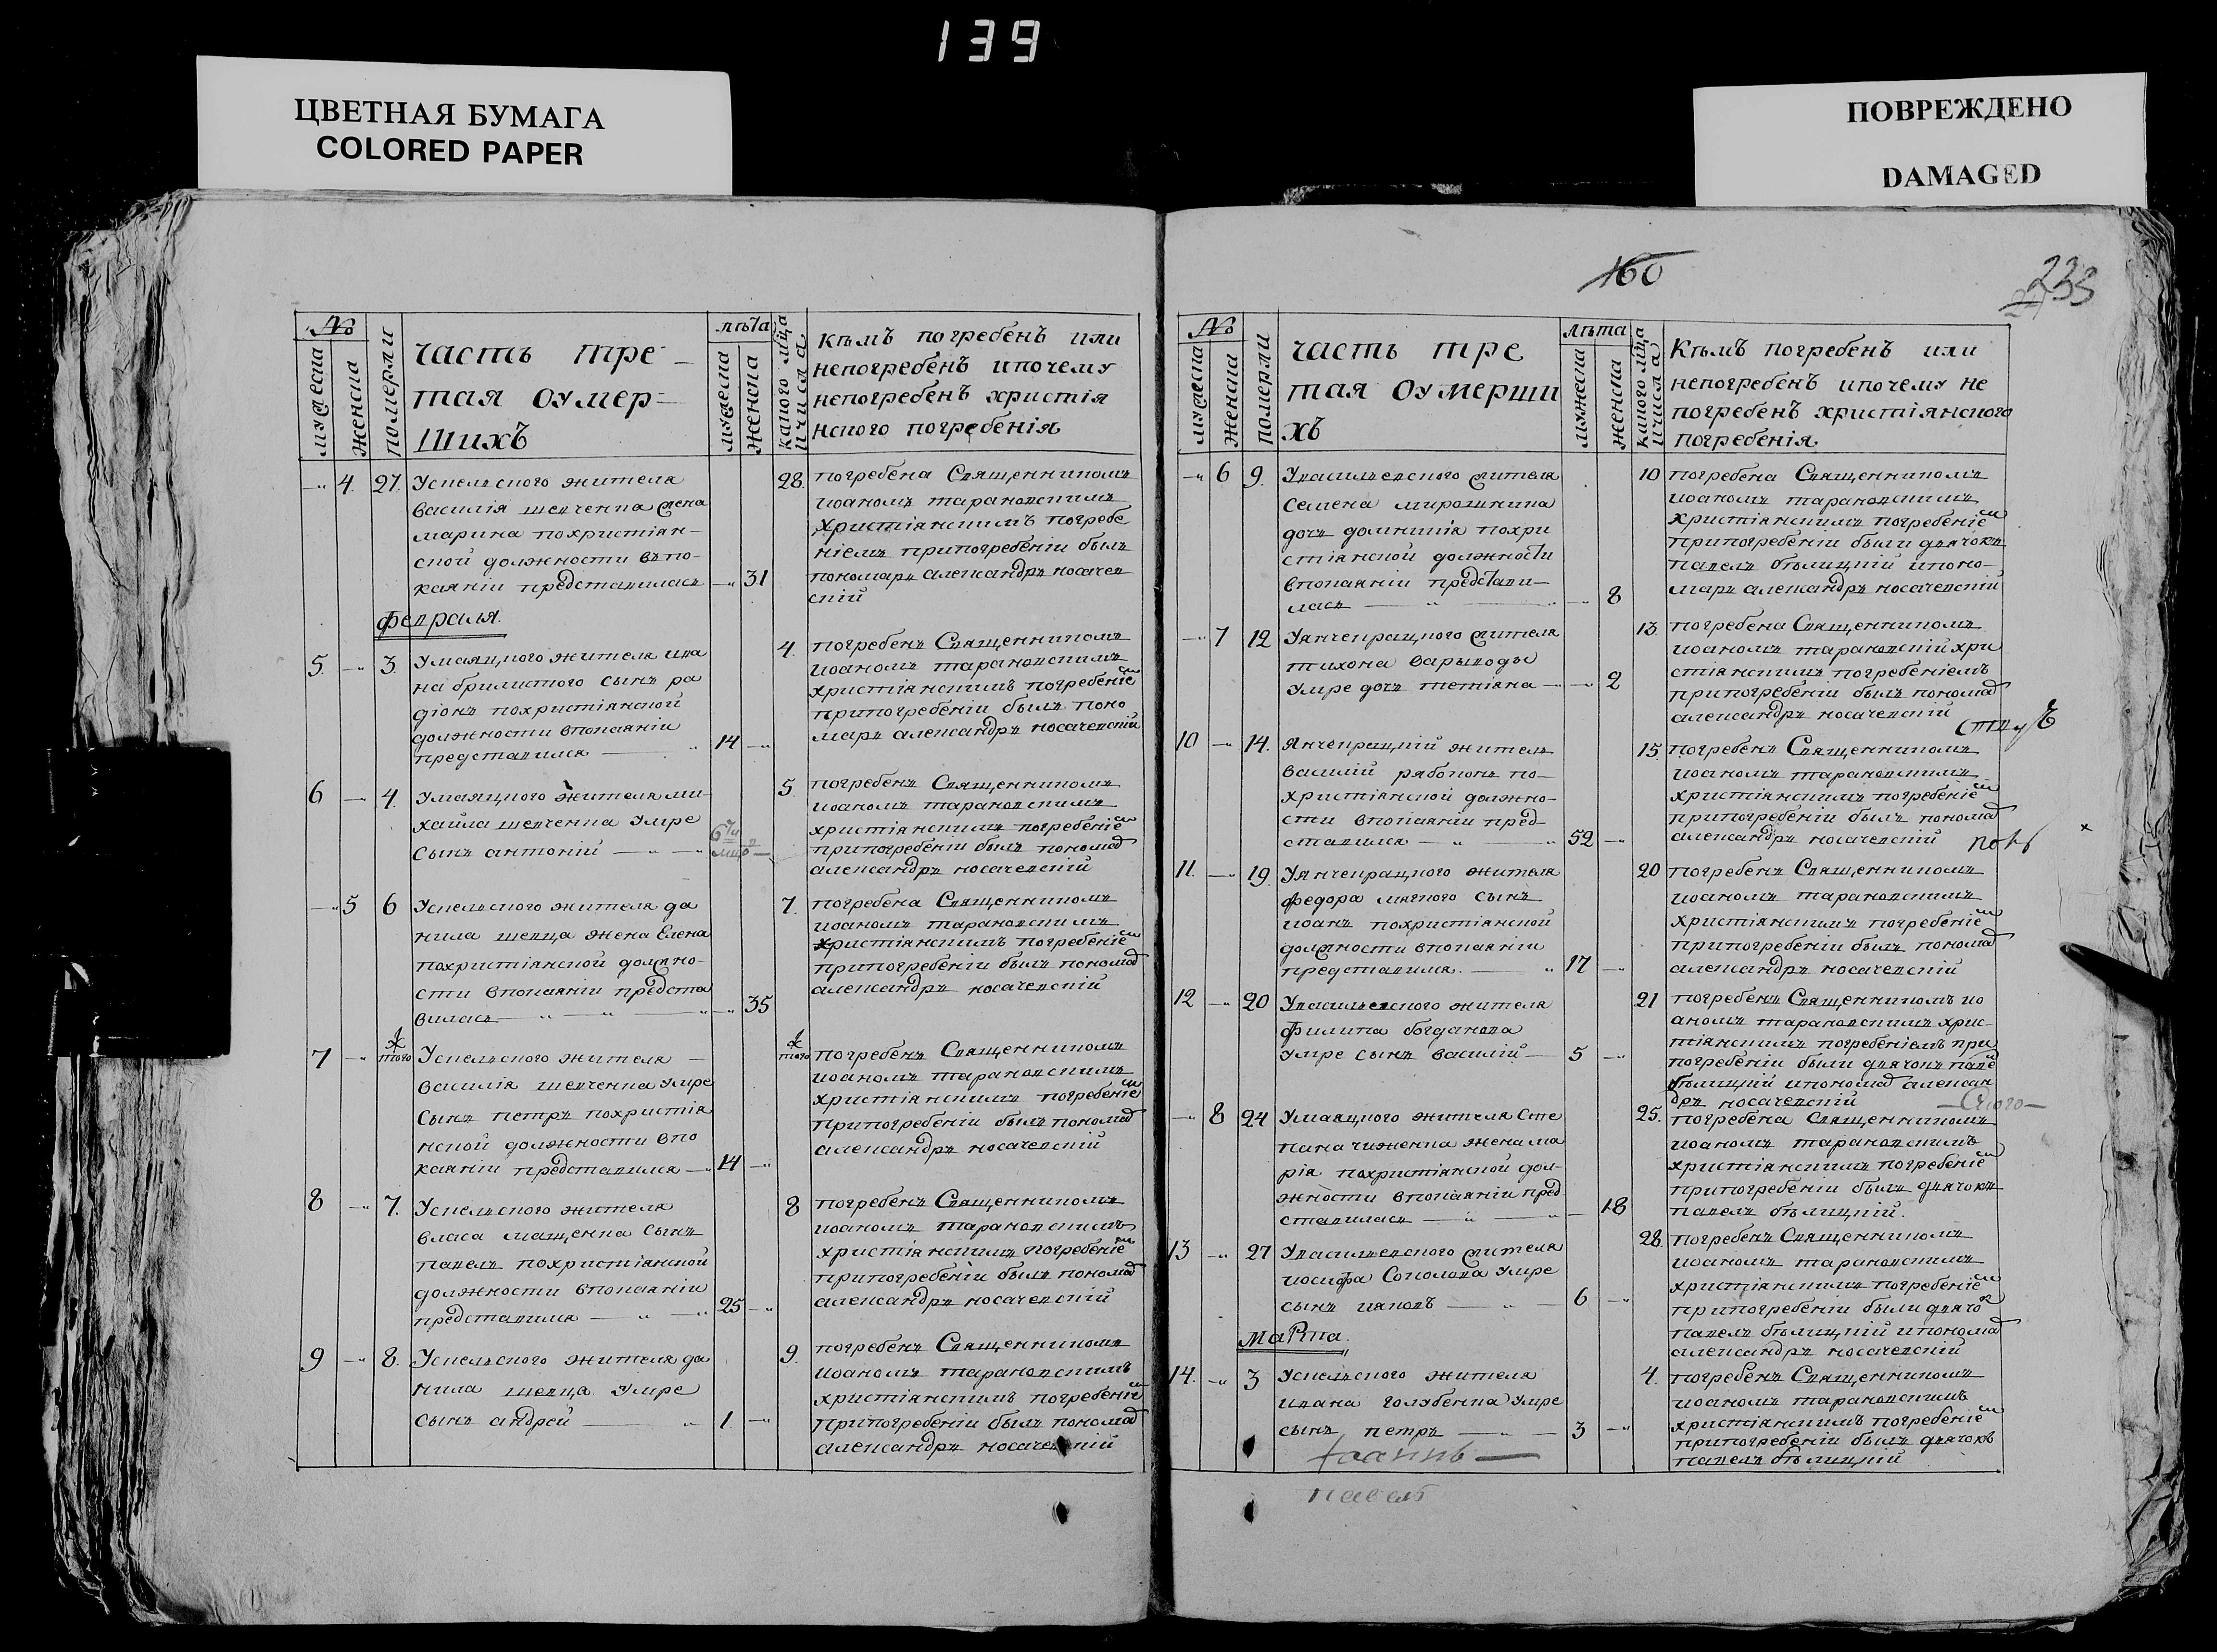 139
ЦВЕТНАЯ БУМАГА
COLORED PAPER
ПОВРЕЖДЕНО
DAMAGED
№
мужеска
женска
померли
часть тре-
тая оумер=
шихъ
лѣта
мужеска
женска
каного мца
ичисла
кѣмъ погребенъ или
непогребенъ ипочему
непогребенъ христія
нского погребенія
4. 27. Успельского жителя
василія шевченка жена
марина похристіян-
ской должности въпо-
каяніи представилась 31
28. погребена Священникомъ
иоаномъ тарановскимъ
христіянскимъ погребе
ніемъ припогребеніи былъ
пономарь александръ носачев
скій
февраля.
5. 3. Умаяцкого жителя ива
на брилистого сынъ ра
діонъ похристіянской
должности впокаяніи
представился 14
4. погребенъ Священникомъ
иоаномъ тарановскимъ
христіянскимъ погребеніем
припогребеніи былъ поно
марь александръ носачевскій
6 4. Умаяцкого жителя ми-
хайла шевченка умре
сынъ антоній
5. погребенъ Священникомъ
иоаномъ тарановскимъ
христіянскимъ погребеніем
припогребеніи былъ пономар
александръ носачевскій
5 6 Успельского жителя да
нила шевца жена Елена
похристіянской должно-
сти впокаяніи предста
вилась 35
7. погребена Священникомъ
иоаномъ тарановскимъ
христіянскимъ погребеніем
припогребеніи былъ пономар
александръ носачевскій
7 того ж Успельского жителя
василія шевченка умре
сынъ петръ похристія
нской должности впо
каяніи представился 14
того ж погребенъ Священникомъ
иоаномъ тарановскимъ
христіянскимъ погребеніем
припогребеніи былъ пономар
александръ носачевскій
8 7. Успельского жителя
власа мащенка сынъ
павелъ похристіянской
должности впокаяніи
представился 25
8 погребенъ Священникомъ
иоаномъ тарановскимъ
христіянскимъ погребеніем
припогребеніи былъ пономар
александръ носачевскій
9 8. Успельского жителя да
нила шевца умре
сынъ андрей 1
9. погребенъ Священникомъ
иоаномъ тарановскимъ
христіянскимъ погребеніем
припогребеніи былъ пономар
александръ носачевскій
160
233
№
мужеска
женска
померли
часть тре
тая оумерши
хъ
лѣта
мужеска
женска
каного мца
ичисла
Кѣмъ погребенъ или
непогребенъ ипочему не
погребенъ христіянского
погребенія
6 9. Увасильевского жителя
семена мирошника
дочь домникія похри
стіянской должности
впокаяніи представи-
лась 8
10 погребена Священникомъ
иоаномъ тарановскимъ
христіянскимъ погребеніем
припогребеніи были дьячокъ
павелъ бѣлицкій ипоно-
марь александръ носачевскій
7 12 Уянчекрацкого жителя
тихона варыводы
умре дочь тетіяна 2
13. погребена Священникомъ
иоаномъ тарановскій хри
стіянскимъ погребеніемъ
припогребеніи былъ пономар
александръ носачевскій
10 14. Янчекрацкій житель
василій рябоконь по-
христіянской должно-
сти впокаяніи пред-
ставился 52
15. погребенъ Священникомъ
иоаномъ тарановскимъ
христіянскимъ погребеніем
припогребеніи былъ пономар
александръ носачевскій
11. 19. Уянчекрацкого жителя
федора мягкого сынъ
иоанъ похристіянской
должности впокаяніи
представился. 17
20 погребенъ Священникомъ
иоаномъ тарановскимъ
христіянскимъ погребеніем
припогребеніи былъ пономар
александръ носачевскій
12 20 Увасильевского жителя
филипа богданова
умре сынъ василій 5
21 погребенъ Священникомъ ио
аномъ тарановскимъ хрис-
тіянскимъ погребеніемъ при
погребеніи были дьячокъ паве
бѣлицкій ипономар алексан
дръ носачевскій
8 24 Умаяцкого жителя сте
пана чиженка жена ма
рія похристіянской дол-
жности впокаяніи пред
ставилась 18
25. погребена Священникомъ
иоаномъ тарановскимъ
христіянскимъ погребеніем
припогребеніи былъ дьячокъ
павелъ бѣлицкій.
13 27 Увасильевского жителя
иосифа Соколова умре
сынъ ияковъ 6
28. погребенъ Священникомъ
иоаномъ тарановскимъ
христіянскимъ погребеніем
припогребеніи были дьячок
павелъ бѣлицкій ипономар
александръ носачевскій
марта.
14. 3 Успельского жителя
ивана голубенка умре
сынъ петръ 3
4. погребенъ Священникомъ
иоаномъ тарановскимъ
христіянскимъ погребеніем
припогребеніи былъ дьячокъ
павелъ бѣлицкій
Іоаннъ
павелъ